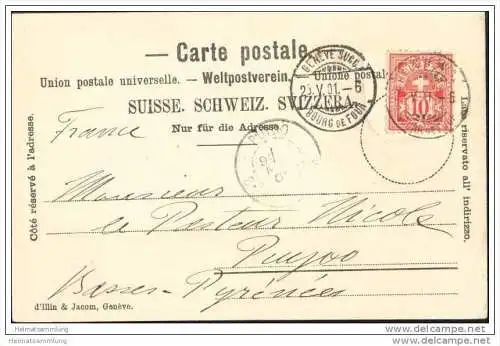 Carte postale.
Union postale universelle. – Weltpostverein. – Unione postale
SUISSE. SCHWEIZ. SVIZZERA.
Nur für die Adresse.
Côté réservé à l'adresse.
Lato riservato all' indirizzo.
GENÈVE SUCC.
23.V.01.-6
BOURG DE FOUR
10
France
Monsieur
le Pasteur Nicole
Puyoo
Basses-Pyrénées
d'Illin & Jacom, Genève.
Heimatsammlung
Heimatsammlung
www.delcampe.net